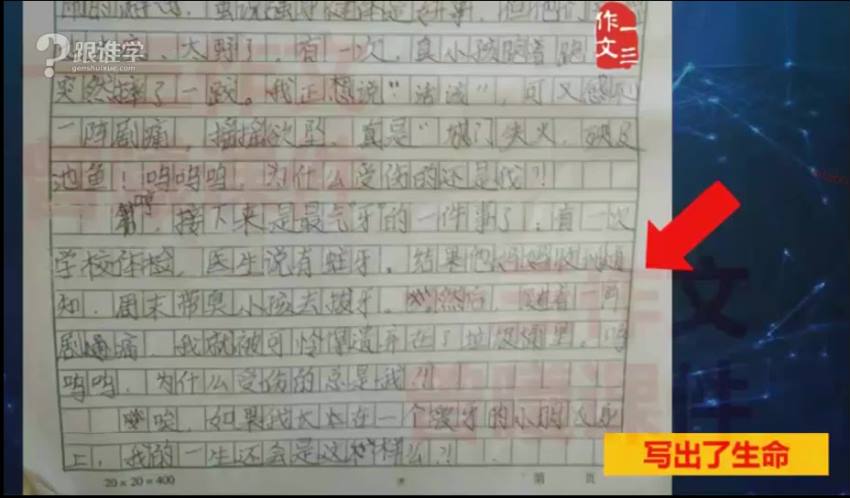 跟谁学
genshuixue.com
作文
一三
大野了,有一次,臭小孩
突然摔了一跤。我正想说"活该",可又感到
一阵剧痛,摇摇欲坠,真是"城门失火,殃及
池鱼!呜呜呜,为什么受伤的还是我?!
哼,接下来是最气"牙"的一件事了:有一次
学校体检,医生说有蛀牙。结果他妈妈收到通
知,周末带臭小孩去拔牙。然后,一阵
剧痛,我就被可怜地遗弃在了垃圾桶里。呜
呜呜,为什么受伤的总是我?!
唉,如果我长在一个爱牙的小朋友身
上,我的一生还会是这样么?!
20×20=400
第 页
写出了生命